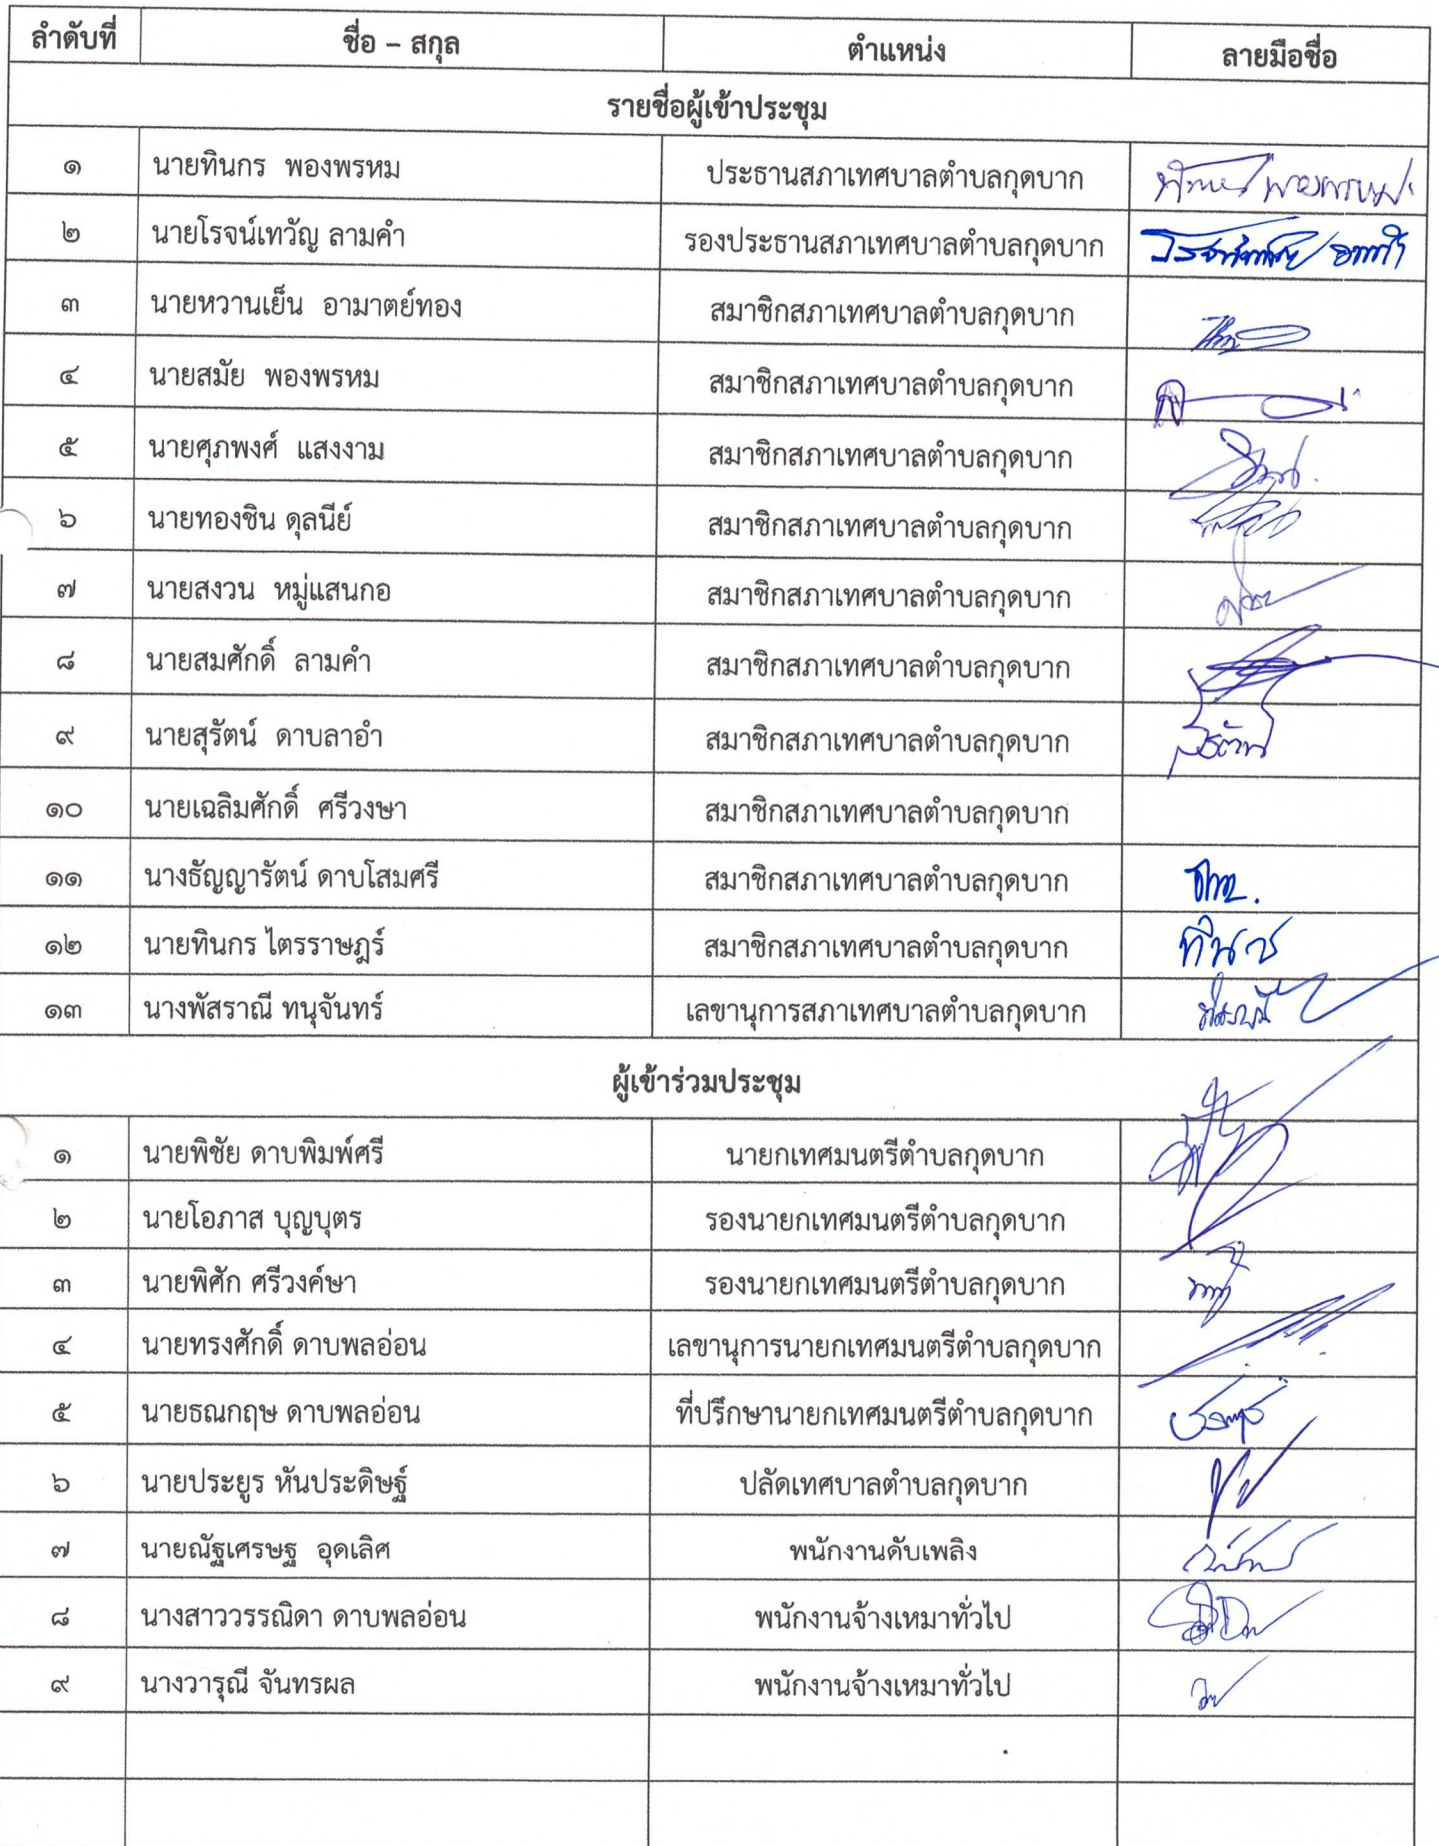 ลำดับที่ ชื่อ – สกุล ตำแหน่ง ลายมือชื่อ
รายชื่อผู้เข้าประชุม
๑ นายทินกร พองพรหม ประธานสภาเทศบาลตำบลกุดบาก
๒ นายโรจน์เทวัญ ลามคำ รองประธานสภาเทศบาลตำบลกุดบาก
๓ นายหวานเย็น อามาตย์ทอง สมาชิกสภาเทศบาลตำบลกุดบาก
๔ นายสมัย พองพรหม สมาชิกสภาเทศบาลตำบลกุดบาก
๕ นายศุภพงศ์ แสงงาม สมาชิกสภาเทศบาลตำบลกุดบาก
๖ นายทองชิน ดุลนีย์ สมาชิกสภาเทศบาลตำบลกุดบาก
๗ นายสงวน หมู่แสนกอ สมาชิกสภาเทศบาลตำบลกุดบาก
๘ นายสมศักดิ์ ลามคำ สมาชิกสภาเทศบาลตำบลกุดบาก
๙ นายสุรัตน์ ดาบลาอำ สมาชิกสภาเทศบาลตำบลกุดบาก
๑๐ นายเฉลิมศักดิ์ ศรีวงษา สมาชิกสภาเทศบาลตำบลกุดบาก
๑๑ นางธัญญารัตน์ ดาบโสมศรี สมาชิกสภาเทศบาลตำบลกุดบาก
๑๒ นายทินกร ไตรราษฎร์ สมาชิกสภาเทศบาลตำบลกุดบาก
๑๓ นางพัสราณี ทนุจันทร์ เลขานุการสภาเทศบาลตำบลกุดบาก
ผู้เข้าร่วมประชุม
๑ นายพิชัย ดาบพิมพ์ศรี นายกเทศมนตรีตำบลกุดบาก
๒ นายโอภาส บุญบุตร รองนายกเทศมนตรีตำบลกุดบาก
๓ นายพิศัก ศรีวงค์ษา รองนายกเทศมนตรีตำบลกุดบาก
๔ นายทรงศักดิ์ ดาบพลอ่อน เลขานุการนายกเทศมนตรีตำบลกุดบาก
๕ นายธณกฤษ ดาบพลอ่อน ที่ปรึกษานายกเทศมนตรีตำบลกุดบาก
๖ นายประยูร หันประดิษฐ์ ปลัดเทศบาลตำบลกุดบาก
๗ นายณัฐเศรษฐ อุดเลิศ พนักงานดับเพลิง
๘ นางสาววรรณิดา ดาบพลอ่อน พนักงานจ้างเหมาทั่วไป
๙ นางวารุณี จันทรผล พนักงานจ้างเหมาทั่วไป